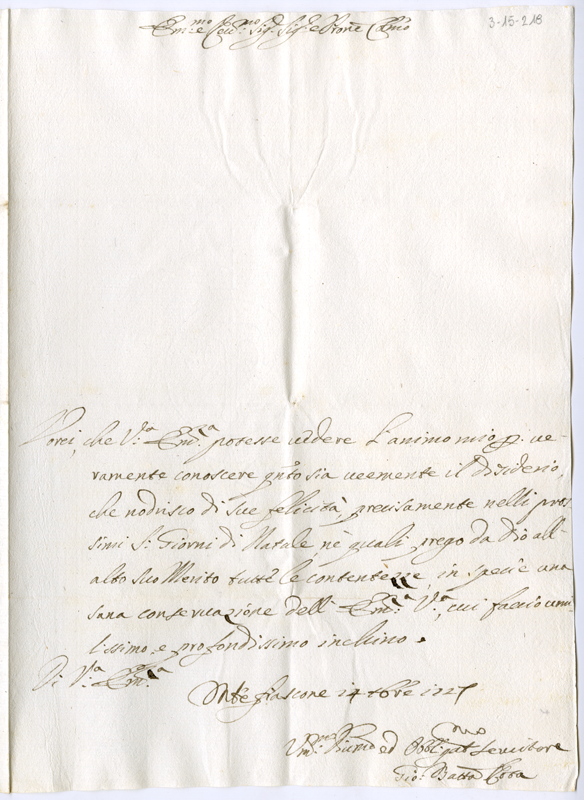 3-15-218
Em.mo e Rev.mo Sig.r Sig.r e Prone Colmo
Vorei, che V.a Em.a potesse vedere l'animo mio p. ve-
ramente conoscere qnto sia veemente il disiderio,
che nodrisco di sue felicità, precisamente nelli pros-
simi S.i Giorni di Natale, ne quali prego da Dio all'
alto suo Merito tutte le contentezze, in specie una
sana conservazione dell' Em.a V.a, cui faccio umi-
lissimo, e profondissimo inchino.
Di V.a Em.a
Mtefiascone 14 Xbre 1727
Um.mo Divmo ed Obblig.atmo Servitore
Gio: Batta